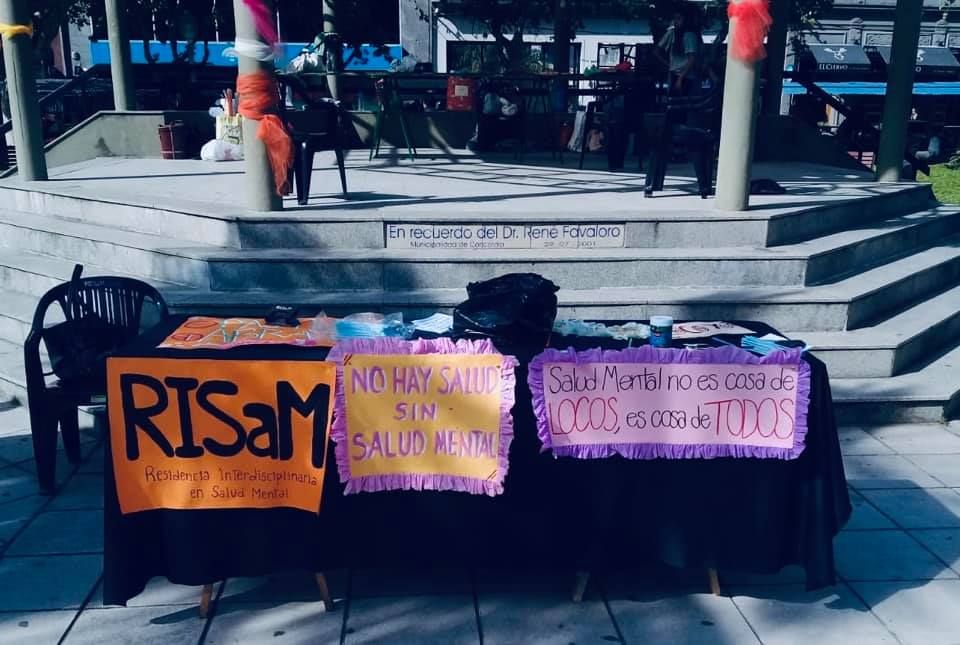 EL CIERVO
En recuerdo del Dr. René Favaloro
Municipalidad de Concordia 29.07.2001
RISaM
Residencia Interdisciplinaria
en Salud Mental
NO HAY SALUD
SIN
SALUD MENTAL
Salud Mental no es cosa de
LOCOS, es cosa de TODOS